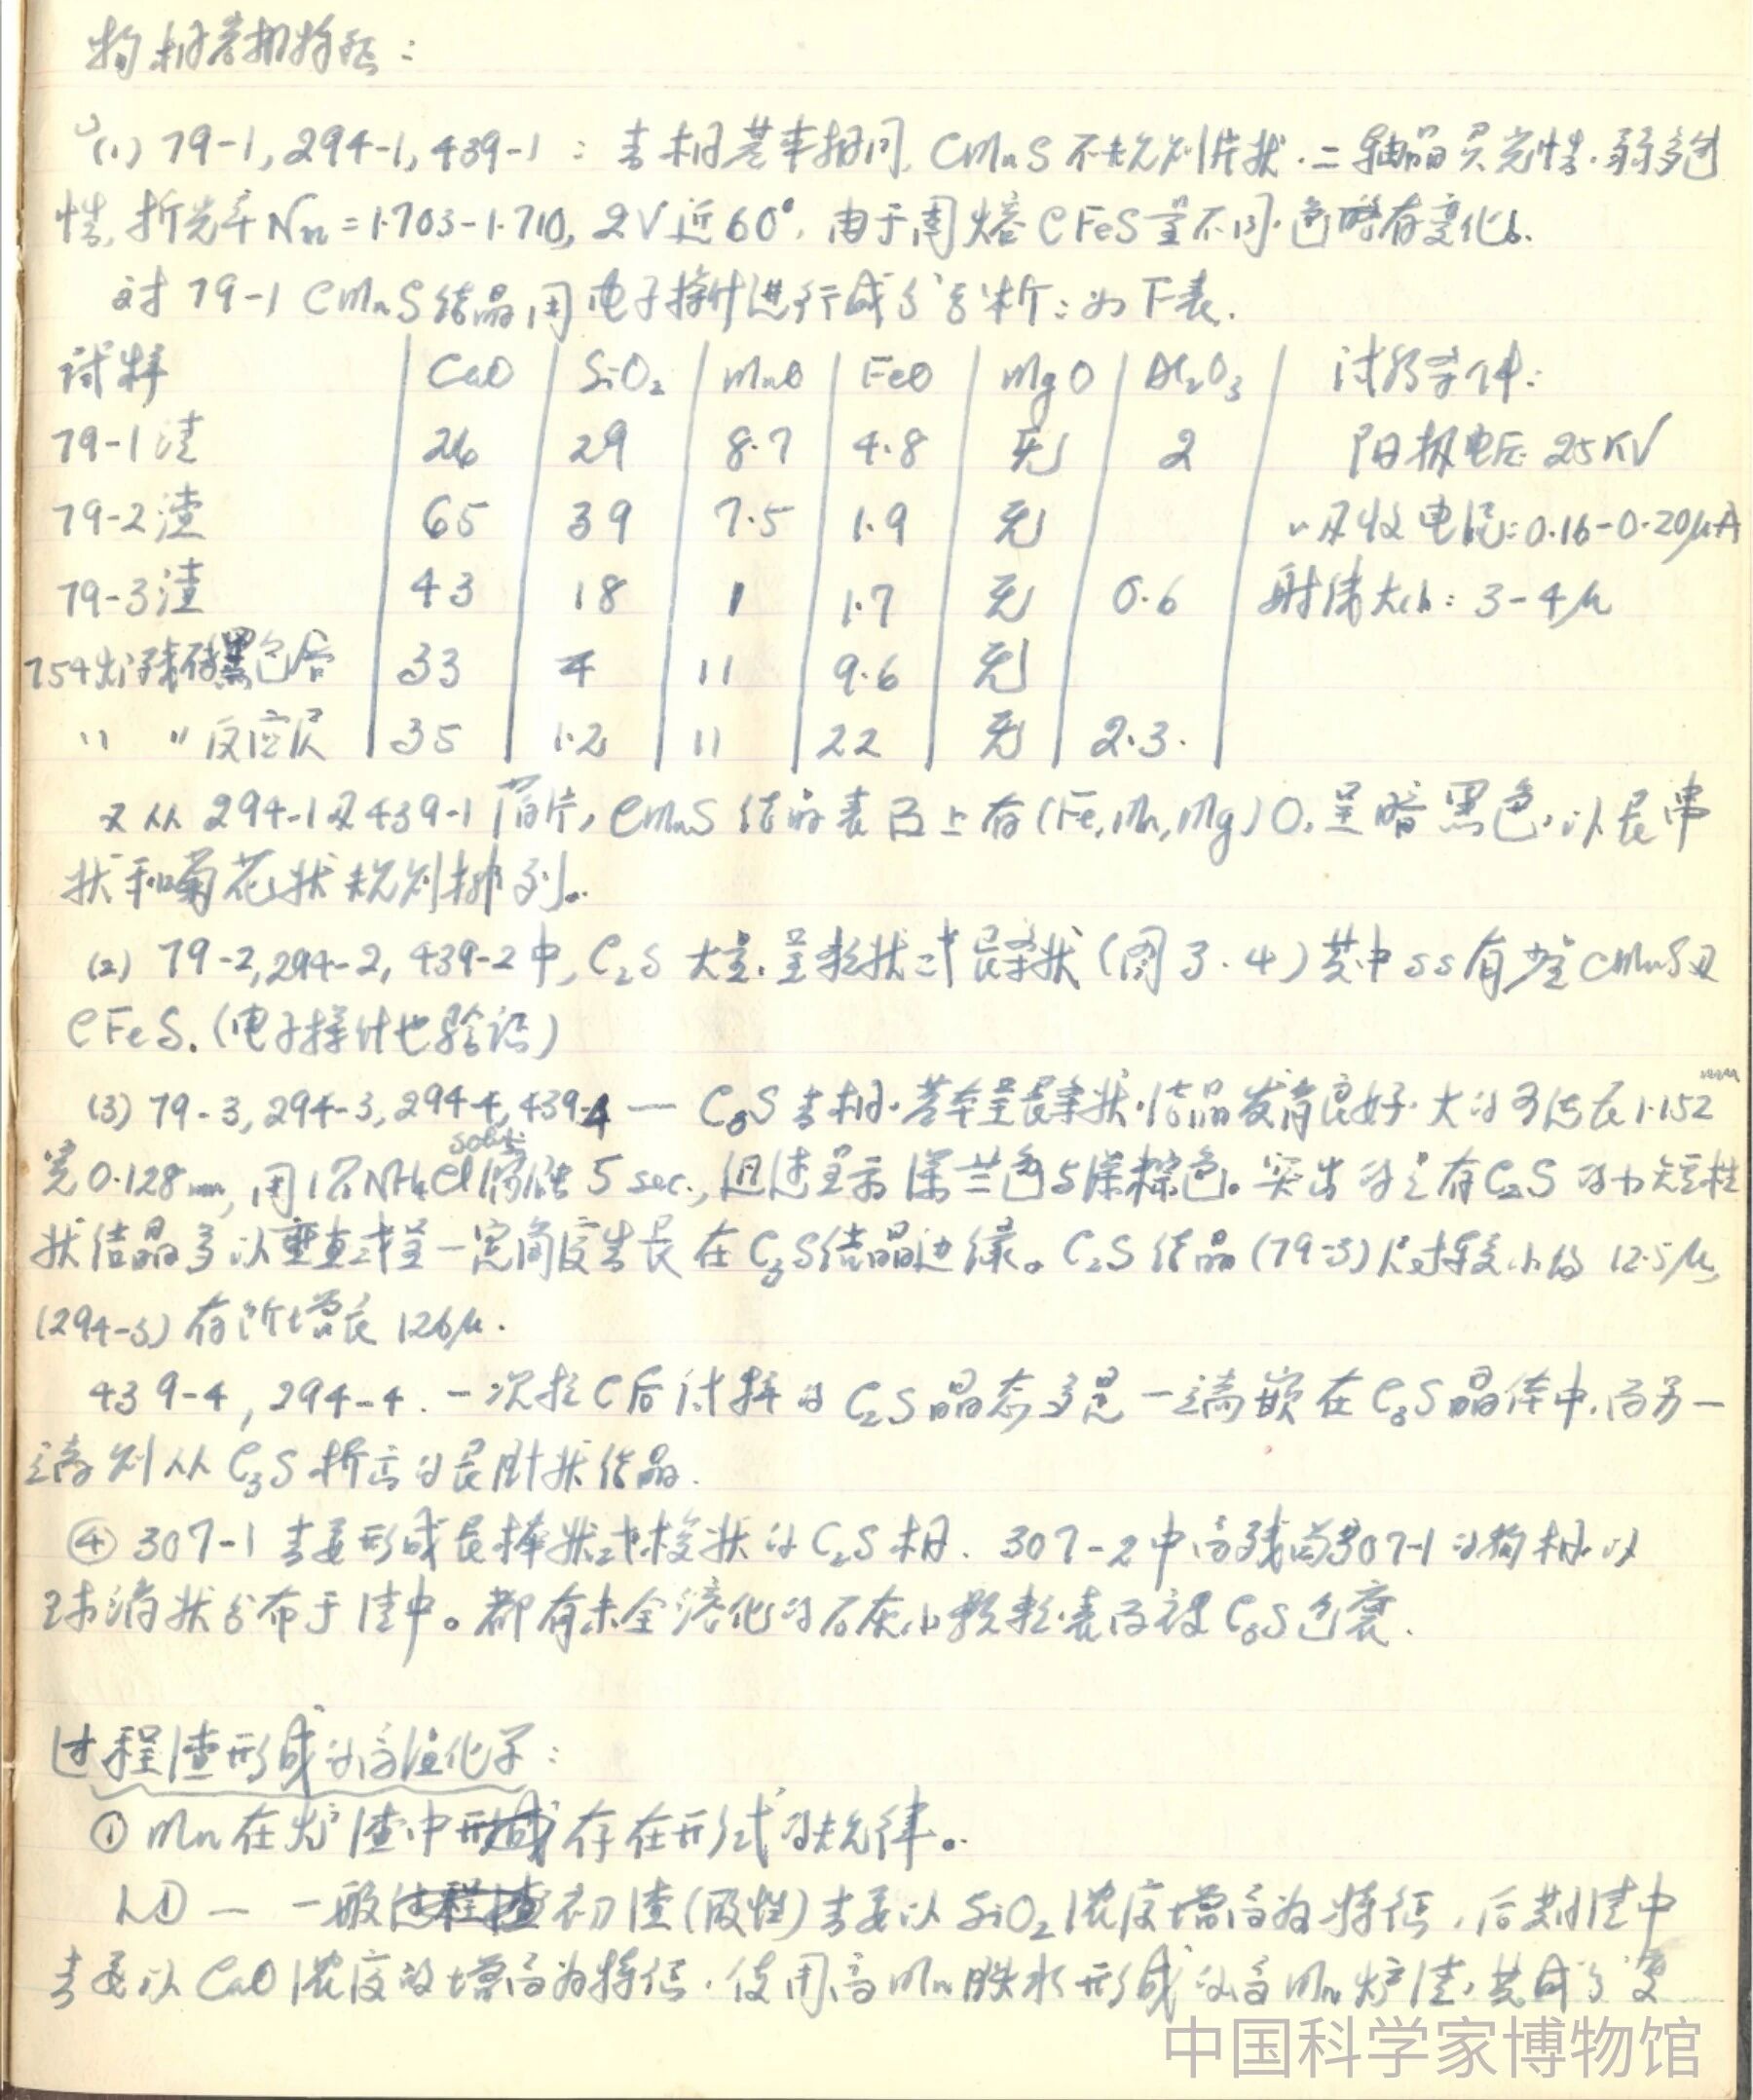 物相岩相特征:
(1) 79-1, 294-1, 439-1 : 主相基本相同, CMnS 不规则片状. 二轴晶 光性. 弱多色
性, 折光率 Nm = 1.703-1.710, 2V近60°, 由于固熔 CFeS 量不同. 色略有变化.
对 79-1 CMnS 结晶用电子探针进行成分分析: 如下表.
试样 CaO SiO₂ MnO FeO MgO Al₂O₃ 试验条件:
79-1渣 26 29 8.7 4.8 无 2 阳极电压 25KV
79-2渣 65 39 7.5 1.9 无 吸收电流: 0.16-0.20μA
79-3渣 43 18 1 1.7 无 0.6 射线大小: 3-4μ
754炉残砖黑色层 33 4 11 9.6 无
" " 反应层 35 1.2 11 22 无 2.3.
又从 294-1及439-1 薄片, CMnS 结晶表面上有 (Fe, Mn, Mg) O, 呈暗黑色, 以长串
状和菊花状规则排列.
(2) 79-2, 294-2, 439-2中, C₂S 大量. 呈粒状或长条状 (图 3. 4) 其中 ss 有少量 CMnS及
CFeS. (电子探针也验证)
(3) 79-3, 294-3, 294-4, 439-4 — C₃S 主相. 基本呈长条状. 结晶发育良好. 大的可达长 1.152mm
宽 0.128mm, 用 1% NH₄Cl 溶蚀 5 sec., 迅速呈示深兰色与深棕色。突出的是有C₂S 的 短柱
状结晶多以垂直或呈一定角度生长在 C₃S结晶边缘。C₂S 结晶 (79-3) 尺寸较小约 12.5μ,
(294-3) 有所增长 126μ.
439-4, 294-4. 一次拉C后试样的 C₂S 晶态多是一端嵌在 C₃S 晶体中. 而另一
端则从 C₃S 析出的长肘状结晶.
④ 307-1 主要形成长棒状或棱状的 C₂S 相. 307-2 中 残留307-1 的物相以
球滴状分布于渣中。都有未全溶化的石灰小颗粒表面被 C₃S 包裹.
过程渣形成的高温化学:
① Mn 在炉渣中存在形式的规律.
LD — 一般初渣 (酸性) 主要以 SiO₂ 浓度增高为特征, 后期渣中
主要以 CaO 浓度的增高为特征. 使用高 Mn 铁水形成的高 Mn 炉渣, 其成分变
中国科学家博物馆